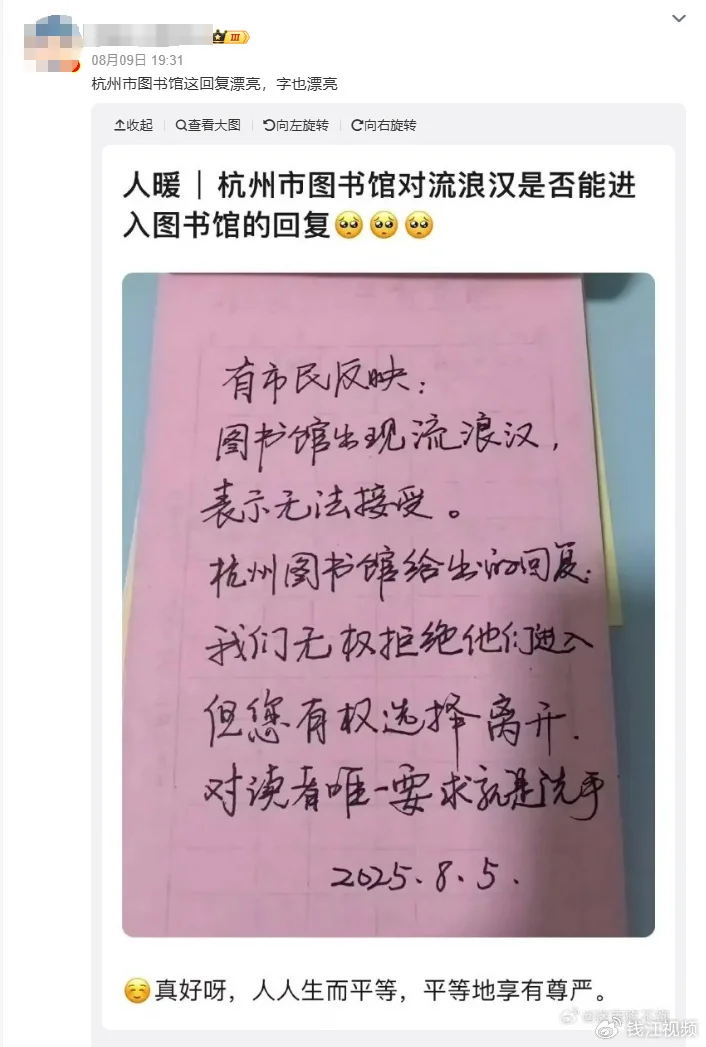 III
08月09日 19:31
杭州市图书馆这回复漂亮，字也漂亮
收起 查看大图 向左旋转 向右旋转
人暖｜杭州市图书馆对流浪汉是否能进
入图书馆的回复
有市民反映：
图书馆出现流浪汉，
表示无法接受。
杭州图书馆给出的回复：
我们无权拒绝他们进入
但您有权选择离开.
对读者唯一要求就是洗手
2025.8.5.
真好呀，人人生而平等，平等地享有尊严。
钱江视频